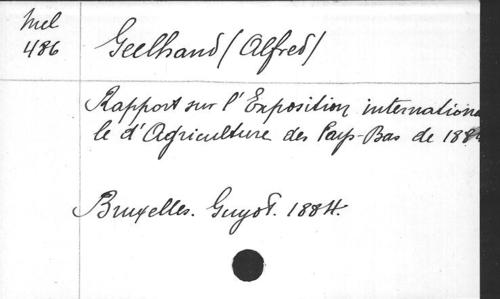 Mel
486
Geelhand (Alfred)
Rapport sur l'Exposition internationa
le d'Agriculture des Pays-Bas de 188
Bruxelles. Guyot. 1884.